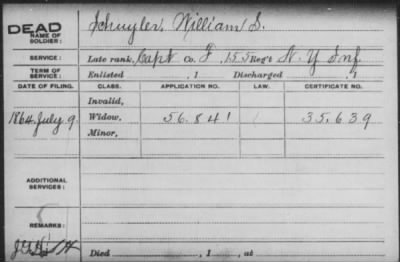 DEAD
NAME OF SOLDIER: Schuyler, William S.
SERVICE: Late rank, Capt Co. F, 155 Reg't N. Y Inf
TERM OF SERVICE: Enlisted , 1 Discharged , 1
DATE OF FILING. CLASS. APPLICATION NO. LAW. CERTIFICATE NO.
Invalid,
1864, July 9 Widow, 56.841 35.639
Minor,
ADDITIONAL SERVICES:
REMARKS:
Died , 1 , at